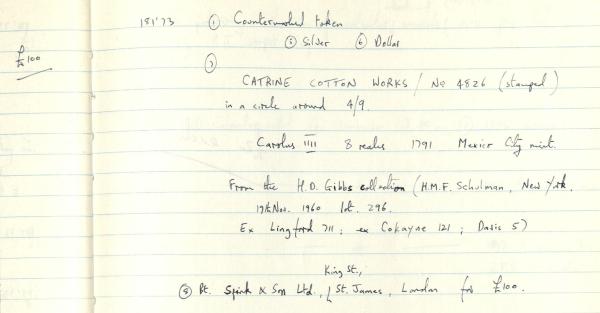 181'73 ① Countermarked token
⑤ Silver ⑥ Dollar
£100
⑦
CATRINE COTTON WORKS / No 4826 (stamped)
in a circle around 4/9.
Carolus IIII 8 reales 1791 Mexico City mint.
From the H.D. Gibbs collection (H.M.F. Schulman, New York,
19th Nov. 1960 lot. 296.
Ex Lingford 711; ex Cokayne 121; Davis 5)
King St.,
⑧ Pt. Spink & Son Ltd., St. James, London for £100.